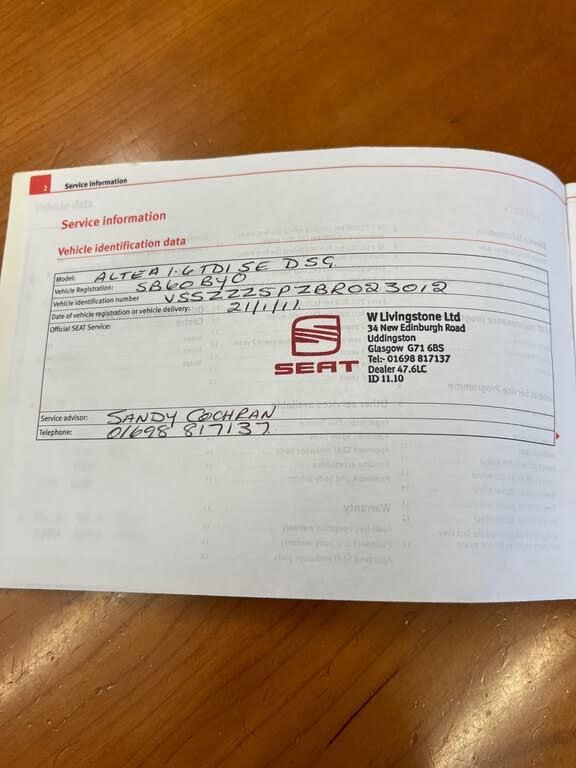 2 Service information
Service information
Vehicle identification data
Model: ALTEA 1.6 TDI SE DSG.
Vehicle Registration: SB60BYO
Vehicle identification number VSSZZZ5PZBR023012
Date of vehicle registration or vehicle delivery: 21/1/11
Official SEAT Service:
SEAT
W Livingstone Ltd
34 New Edinburgh Road
Uddingston
Glasgow G71 6BS
Tel:- 01698 817137
Dealer 47.6LC
ID 11.10
Service advisor: SANDY COCHRAN
Telephone: 01698 817137